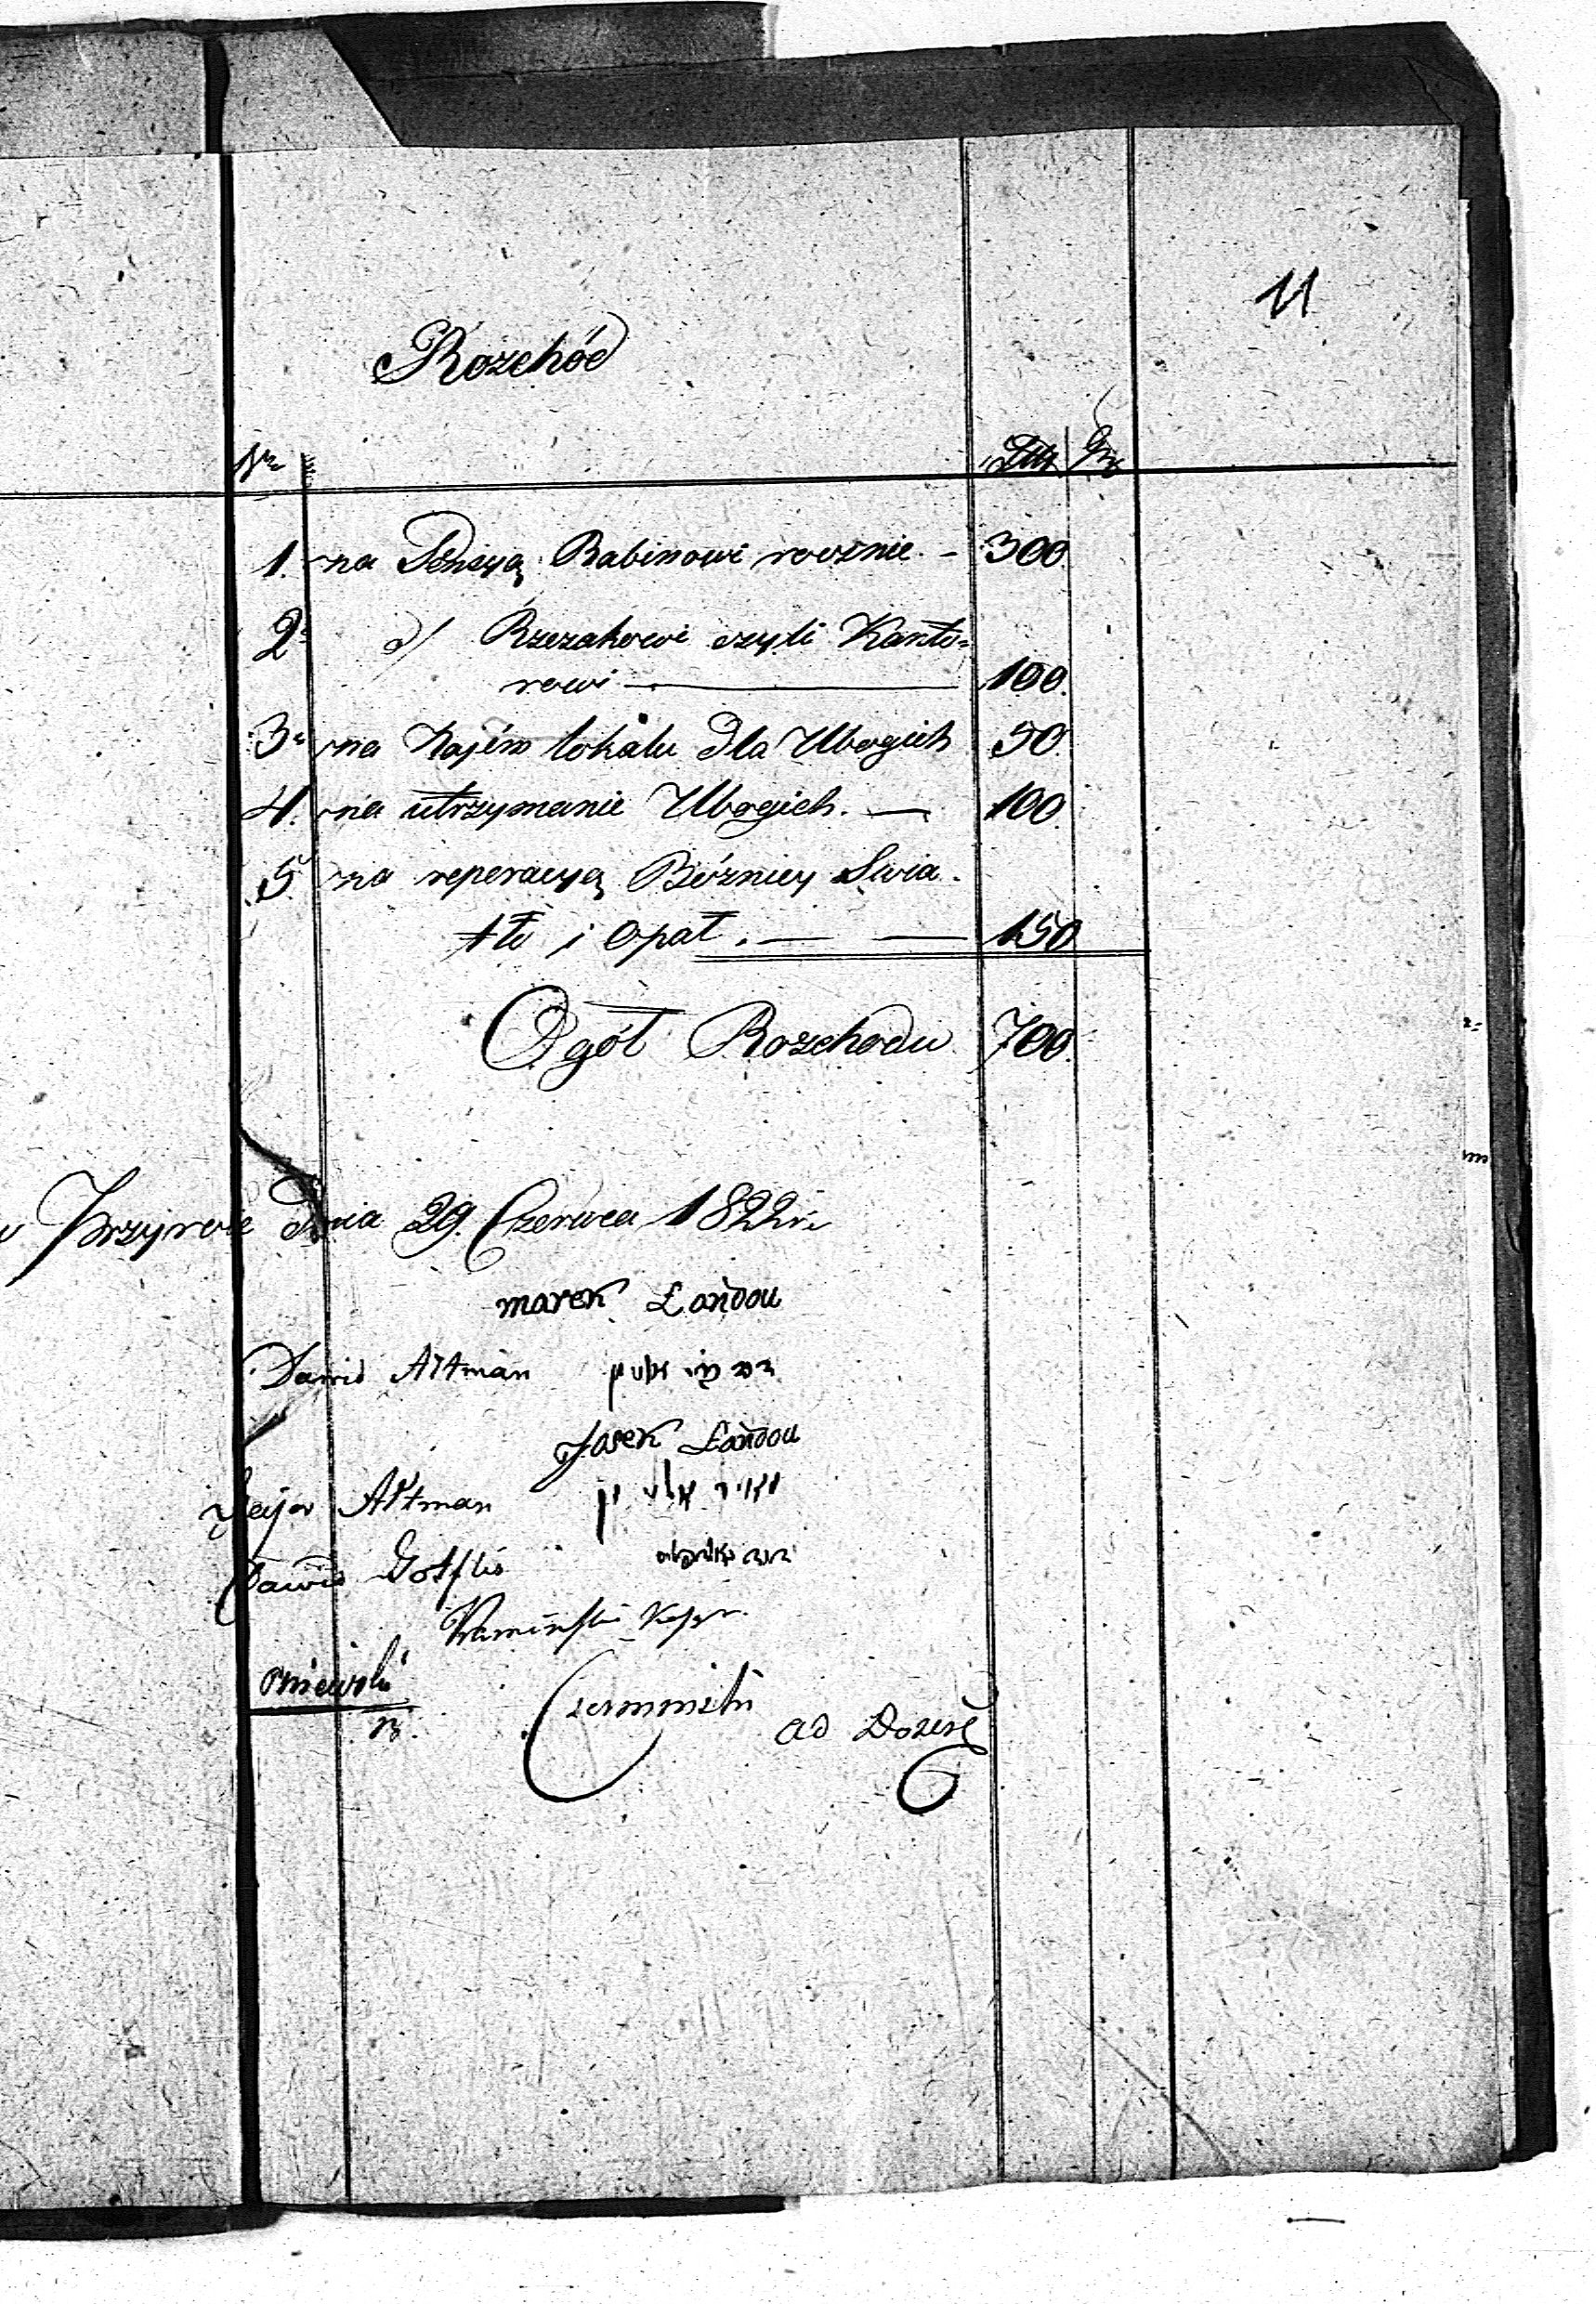 11
Rozchód
Nro Złt Gr
1. na Pensyą Rabinowi rocznie. - 300.
2. d/ Rzezakowi czyli Kanto=
rowi 100.
3. na Najém lokalu dla Ubogich 50.
4. na utrzymanie Ubogich. — 100.
5. na reperacyą Bóżnicy Swia.
tło i Opał. — — 150
Ogół Rozchodu 700.
w Przyrowie Dnia 29. Czerwca 1822 r.
Marek Landou
Dawid Altman
Josek Landou
Altman
Dawid
Czerminski ad Dozeru